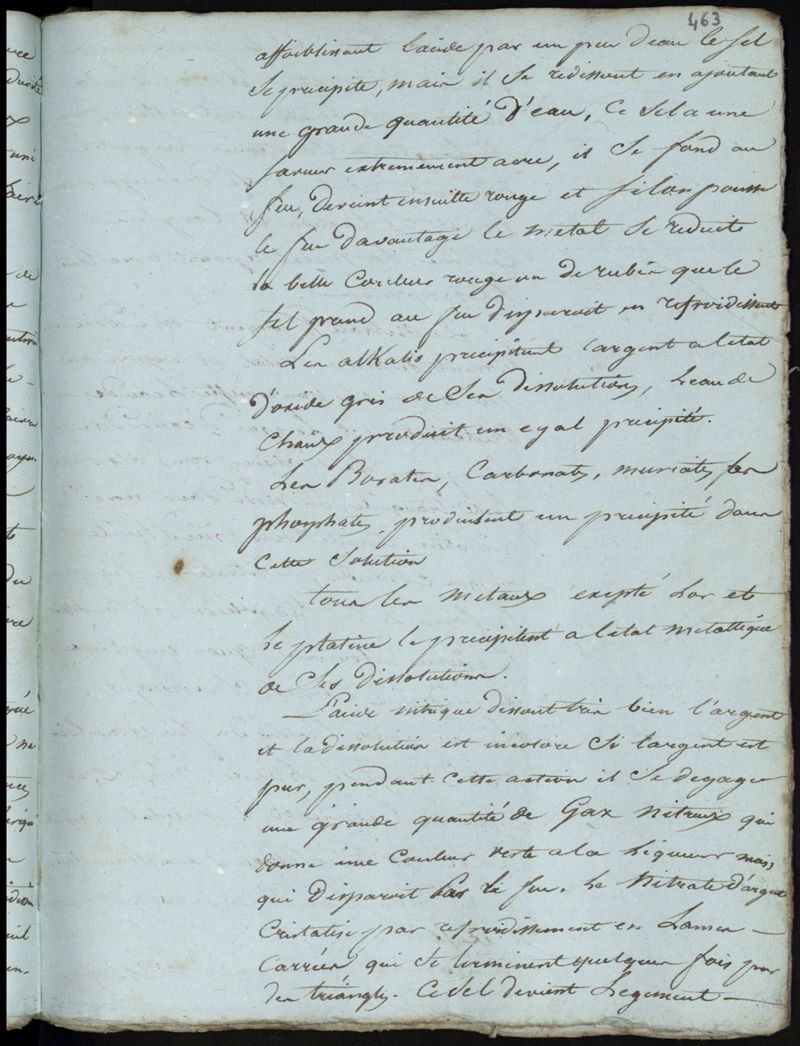 463
affoiblissant l'acide par un peu d'eau le sel
se precipite, mais il se redissout en ajoutant
une grande quantité d'eau, Ce sel a une
saveur extremement acre, il se fond au
feu, devient ensuitte rouge et si l'on pousse
le feu d'avantage le metal se reduite
la belle Couleur rouge ou de rubin que le
sel prend au feu disparoit en refroidissant
Les alkalis precipitent l'argent a l'etat
d'oxide gris de ses dissolutions, L'eau de
Chaux produit un egal precipité.
Les Borates, Carbonates, muriates, les
phosphates, produisent un precipité dans
cette solution
tous les metaux exepté L'or et
Le platine le precipitent a l'etat metallique
de ses dissolutions.
L'acide nitrique dissout très bien l'argent
et la dissolution est incolore si l'argent est
pur, pendant cette action il se degage
une grande quantité de Gaz nitreux qui
donne une Couleur verte a la Liqueur mais
qui disparoit par le feu. Le Nitrate d'argent
Cristalise par refroidissement en Lames
Carrées qui se terminent quelques fois par
des triangles. Ce sel devient Legement